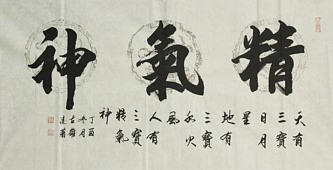 精氣神
天有
三寶
日月
星
地有
三寶
水火
風
人有
三寶
精氣
神
丁酉
冬月